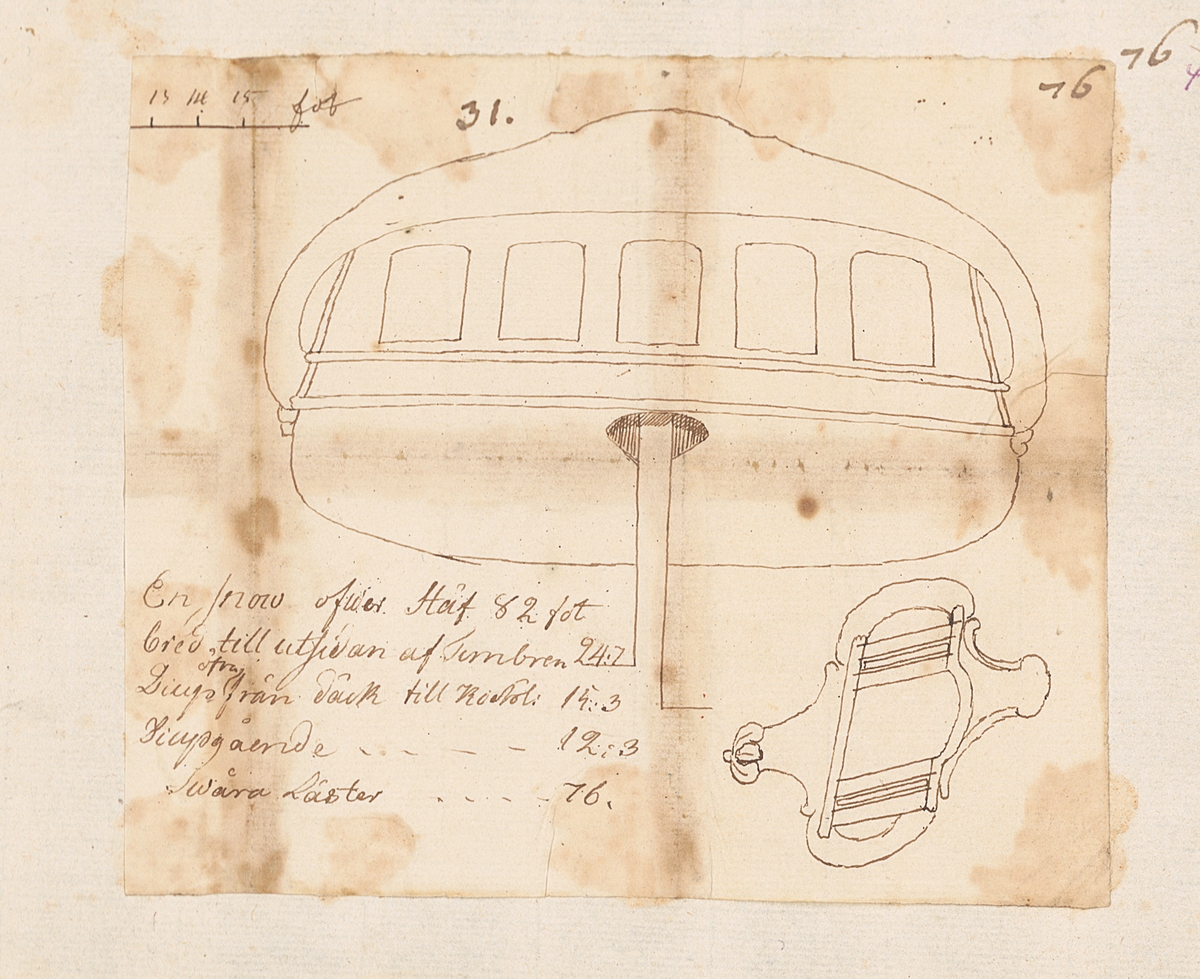 76
76
13 14 15 fot
31.
En snow öfwer Stäf 82 fot
bred till utsidan af Timbren 24:7
Diup från däck till 15:3
Diupgående - - - - - 12:3
Swåra Läster - - - - 76.